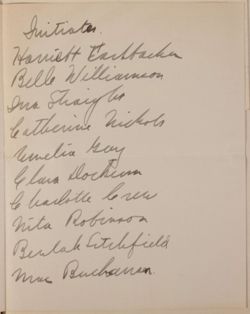 Initiates.
Harriett
Belle Williamson
Ina Straight
Catherine Nickols
Amelia Guy
Clara Dockum
Charlotte Crew
Nita Robinson
Beulah Litchfield
Mrs Buchanan.